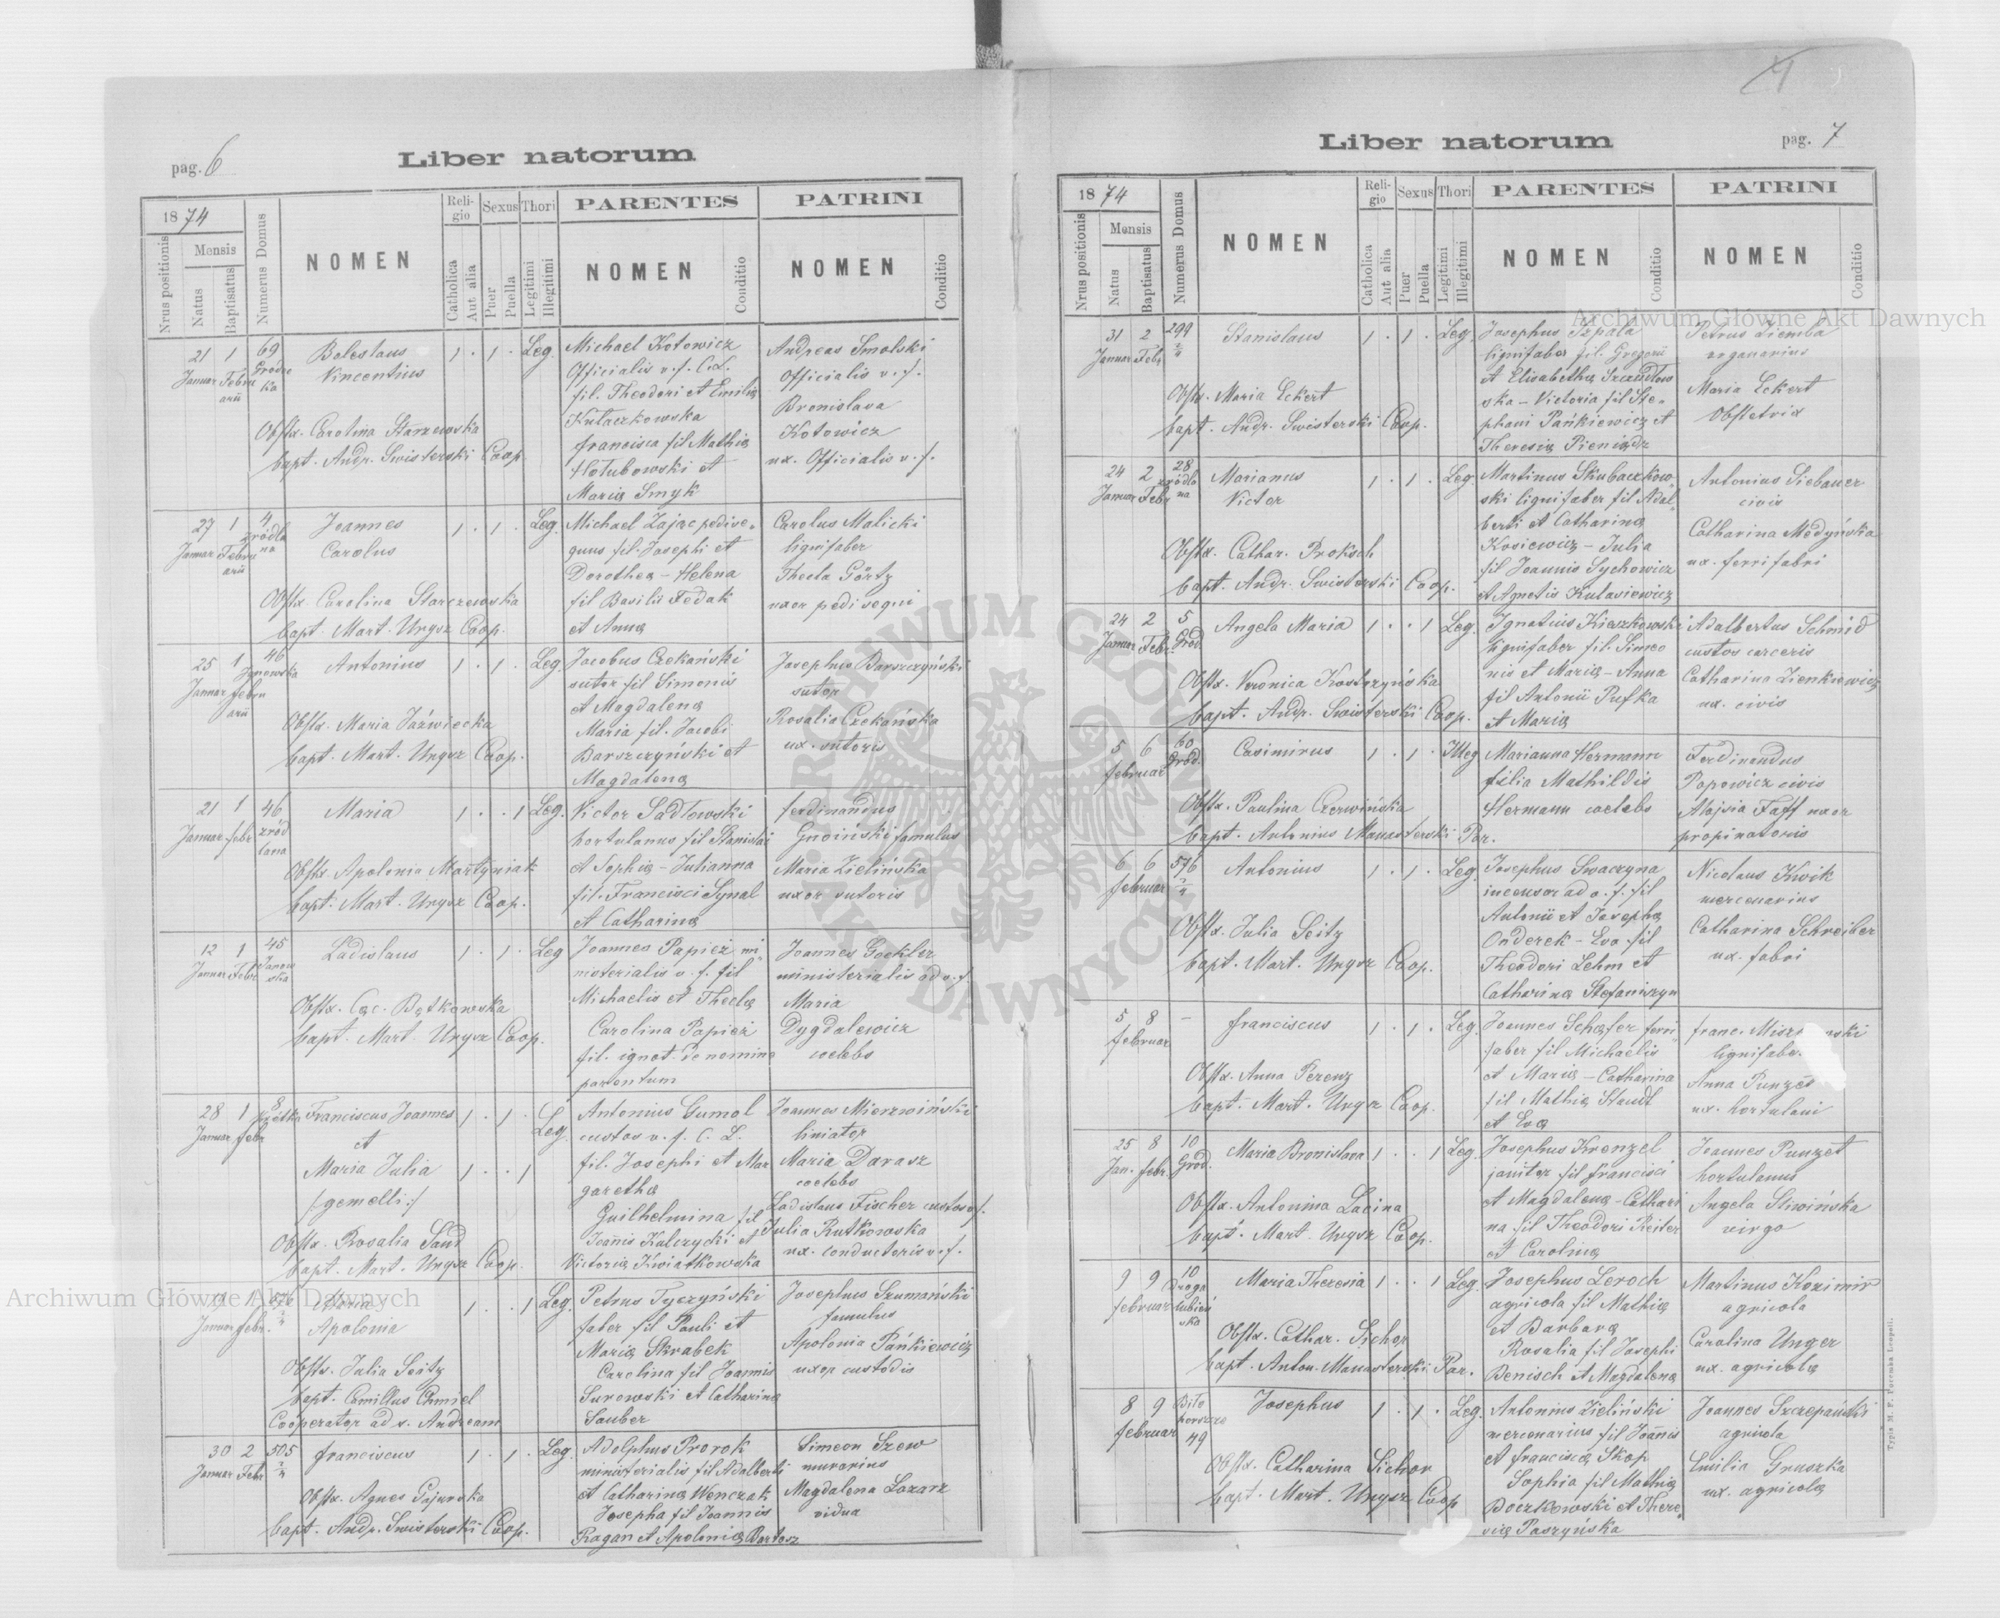 pag. 6
Liber natorum
1874
Nrus positionis
Mensis
Natus
Baptisatus
Numerus Domus
NOMEN
Religio
Catholica
Aut alia
Sexus
Puer
Puella
Thori
Legitimi
Illegitimi
PARENTES
NOMEN
Conditio
PATRINI
NOMEN
Conditio
21 Januar
1 Februarii
69 Gródecka
Boleslaus
Vincentius
1 · 1 · Leg.
Obstx. Carolina Starzewska
bapt. Andr. Swisterski Coop.
Michael Kotowicz
Officialis v. f. C. L.
fil. Theodori et Emilia
Kulaczkowska
Francisca fil Mathia
Hołubowski et
Maria Smyk
Andreas Smolski
Officialis v. f.
Bronislava
Kotowicz
ux. Officialis v. f.
27 Januar
1 Februarii
4
Joannes
Carolus
1 · 1 · Leg.
Obstx. Carolina Starczewska
bapt. Mart. Ungsz Coop.
Michael Zając pedise-
quus fil. Josephi et
Dorothea – Helena
fil Basilii Fedak
et Anna
Carolus Malicki
lignifaber
Thecla Görtz
uxor pedisequi
25 Januar
1 Februarii
46 Janowska
Antonius
1 · 1 · Leg.
Obstx. Maria Jaźwiecka
bapt. Mart. Ungsz Coop.
Jacobus Czekański
sutor fil Simonis
et Magdalena
Maria fil. Jacobi
Barszczyński et
Magdalena
Josephus Barszczyński
sutor
Rosalia Czekańska
ux. sutoris
21 Januar
1 Febr
46
Maria
1 · · 1 Leg.
Obstx. Apolonia Martyniak
bapt. Mart. Ungsz Coop.
Victor Sadlowski
hortulanus fil Stanislai
et Sophia – Julianna
fil. Francisci Synal
et Catharina
Ferdinandus
Gnoiński famulus
Maria Zielińska
uxor sutoris
12 Januar
1 Febr
45 Janowska
Ladislaus
1 · 1 · Leg
Obstx. Cac. Bętkowska
bapt. Mart. Ungsz Coop.
Joannes Papież mi-
nisterialis v. f. fil
Michaelis et Thecla
Carolina Papież
fil. ignot. de nomine
parentum
Joannes Gockler
ministerialis ad v. f.
Maria
Dygdalewicz
coelebs
28 Januar
1 Febr
8
Franciscus Joannes
et
Maria Julia
/:gemelli:/
1 · 1 ·
1 · · 1
Leg.
Obstx. Rosalia Sand
bapt. Mart. Ungsz Coop.
Antonius Gumol
custos v. f. C. L.
fil. Josephi et Mar
garetha
Guilhelmina fil
Joannis Kulczycki et
Victoria Kwiatkowska
Joannes Mierzwiński
liniator
Maria Darasz
coelebs
Ladislaus Fischer custos v. f.
Julia Rutkowska
ux. conductoris v. f.
19 Januar
1 Febr.
Maria
Apolonia
1 · · 1 Leg.
Obstx. Julia Seitz
bapt. Camillus Chmiel
Cooperator ad s. Andream
Petrus Tyczyński
faber fil Pauli et
Maria Skrabek
Carolina fil Joannis
Surowski et Catharina
Sauber
Josephus Szumański
famulus
Apolonia Pańkiewicz
uxor custodis
30 Januar
2 Febr
505 2/4
Franciscus
1 · 1 · Leg.
Obstx. Agnes Gajurska
bapt. Andr. Swisterski Coop.
Adolphus Prorok
ministerialis fil Adalberti
et Catharina Wenczak
Josepha fil Joannis
Ragan et Apolonia Bartosz
Simeon Szew
murarius
Magdalena Lazarz
vidua
pag. 7
Liber natorum
1874
Nrus positionis
Mensis
Natus
Baptisatus
Numerus Domus
NOMEN
Religio
Catholica
Aut alia
Sexus
Puer
Puella
Thori
Legitimi
Illegitimi
PARENTES
NOMEN
Conditio
PATRINI
NOMEN
Conditio
31 Januar
2 Febr
299 2/4
Stanislaus
1 · 1 · Leg.
Obstx. Maria Eckert
bapt. Andr. Swisterski Coop.
Josephus Szpala
lignifaber fil. Gregorii
et Elisabetha
ska – Victoria fil Ste-
phani Pańkiewicz et
Theresia Pieniądz
Petrus Ziemba
Maria Eckert
Obstetrix
24 Januar
2 Febr
28
Marianus
Victor
1 · 1 · Leg.
Obstx. Cathar. Proksch
bapt. Andr. Swisterski Coop.
Martinus Skubaczkow-
ski lignifaber fil Adal-
berti et Catharina
Kosiewicz – Julia
fil Joannis Sychowicz
et Agnetis Kulasiewicz
Antonius Siebauer
civis
Catharina Medyńska
ux. ferrifabri
24 Januar
2 Febr.
5 Gród.
Angela Maria
1 · · 1 Leg.
Obstx. Veronica Kostrzyńska
bapt. Andr. Swisterski Coop.
Ignatius Kieszkowski
lignifaber fil. Simeo
nis et Maria – Anna
fil Antonii Pufka
et Maria
Adalbertus Schmid
custos carceris
Catharina Zienkiewicz
ux. civis
5 6
Februar
60 Gród.
Casimirus
1 · 1 · Illeg
Obstx. Paulina Czerwińska
bapt. Antonius Manasterski Par.
Marianna Hermann
filia Mathildis
Hermann coelebs
Ferdinandus
Popowicz civis
Alojsia Faff uxor
propinatoris
6 6
Februar
576 2/4
Antonius
1 · 1 · Leg
Obstx. Julia Seitz
bapt. Mart. Ungsz Coop.
Josephus Swaczyna
incensor ad v. f. fil
Antonii et Josepha
Onderek – Eva fil
Theodori Lehm et
Catharina Stefaniszyn
Nicolaus Kwik
mercenarius
Catharina Schreiber
ux. fabri
5 8
Februar
–
Franciscus
1 · 1 · Leg.
Obstx. Anna Perenz
bapt. Mart. Ungsz Coop.
Joannes Schafer ferri-
faber fil Michaelis
et Maria – Catharina
fil Mathia Staudt
et Eva
Franc.
lignifaber
Anna Punzet
ux. hortulani
25 Jan.
8 Febr.
10 Gród.
Maria Bronislava
1 · · 1 Leg.
Obstx. Antonina Lacina
bapt. Mart. Ungsz Coop.
Josephus Krenzel
janitor fil Francisci
et Magdalena – Cathari
na fil Theodori Reiter
et Carolina
Joannes Punzet
hortulanus
Angela Sliwińska
virgo
9 9
Februar
10
Maria Theresia
1 · · 1 Leg.
Obstx. Cathar. Sichor
bapt. Anton. Manasterski Par.
Josephus Leroch
agricola fil Mathia
et Barbara
Rosalia fil Josephi
Benisch et Magdalena
Martinus Kozimir
agricola
Carolina Unger
ux. agricola
8 9
Februar
49
Josephus
1 · 1 · Leg.
Obstx. Catharina Sichor
bapt. Mart. Ungsz Coop
Antonius Zieliński
mercenarius fil Joannis
et Francisca Skop
Sophia fil Mathia
Boczkowski et There
sia Paszyńska
Joannes Szczepański
agricola
Emilia Gruszka
ux. agricola
Typis M. F. Poremba Leopoli.
Archiwum Główne Akt Dawnych
Archiwum Główne Akt Dawnych
ARCHIWUM GŁÓWNE AKT DAWNYCH